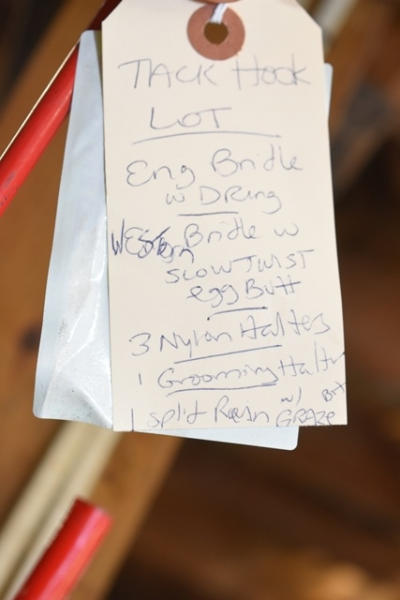 TACK Hook
LOT
Eng Bridle
w DRing
WESTern Bridle w
SLOW TWIST
egg Butt
3 Nylon Halters
1 Grooming Halter
1 split Rein w/ Bit
GRAZE